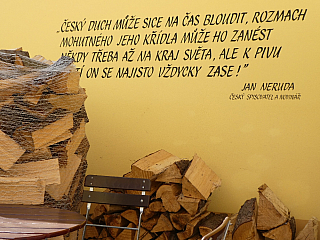 „ČESKÝ DUCH MŮŽE SICE NA ČAS BLOUDIT, ROZMACH
MOHUTNÉHO JEHO KŘÍDLA MŮŽE HO ZANÉST
NĚKDY TŘEBA AŽ NA KRAJ SVĚTA, ALE K PIVU
TÍ ON SE NAJISTO VŽDYCKY ZASE!"
JAN NERUDA
ČESKÝ SPISOVATEL A NOVINÁŘ